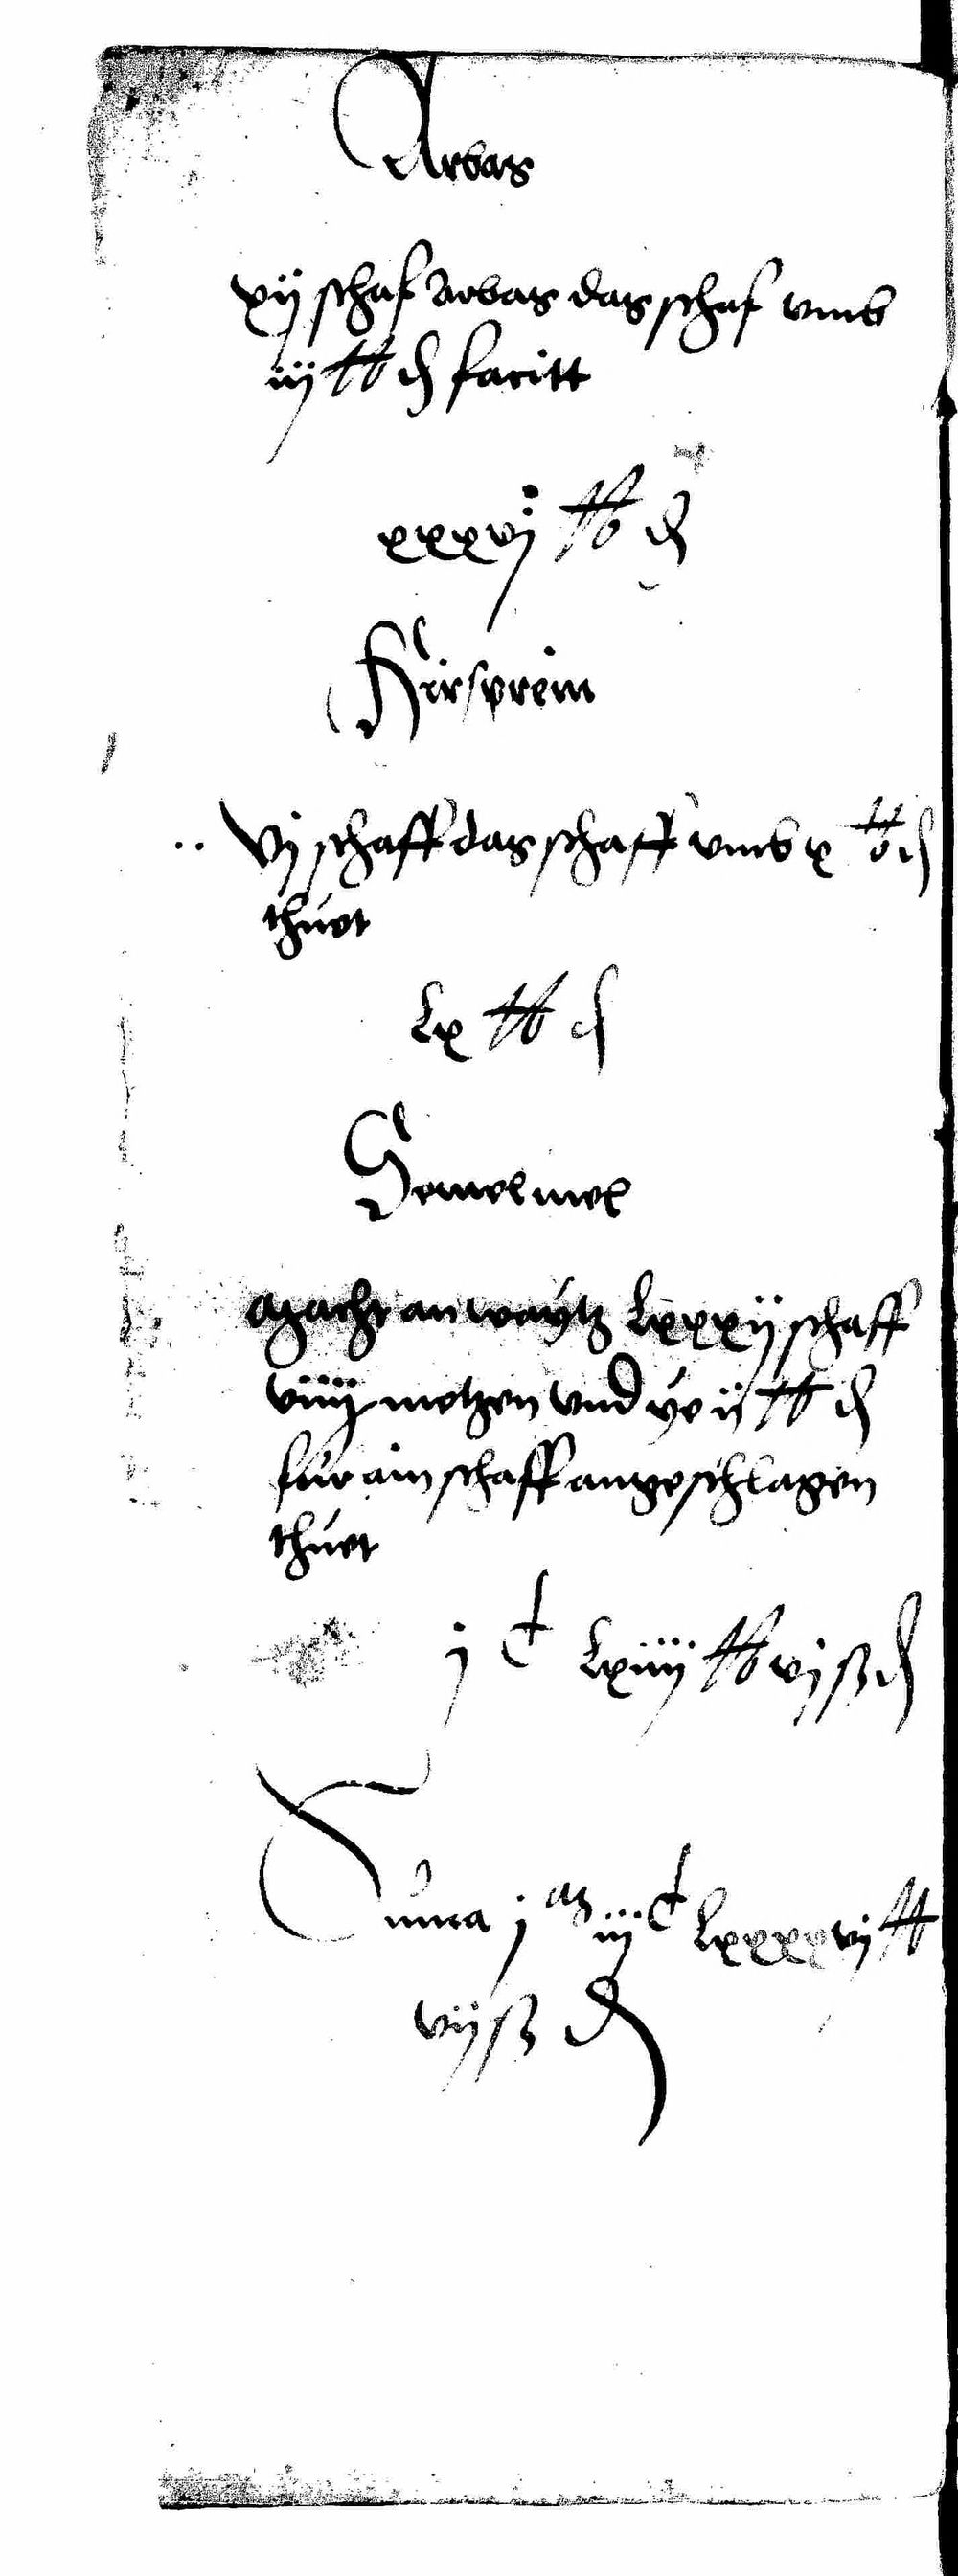 Arbas
xij schaf Arbas das schaf vmb
iij ℔ ₰ facitt
xxxvj ℔ ₰
Hirsprein
vj schaff das schaff vmb x ℔ ₰
thuet
Lx ℔ ₰
Semelmel
Macht an waytz Lxxxij schaff
viiij metzen vnd ye ij ℔ ₰
für ain schaff angeschlagen
thuet
j c Lxiiij ℔ vj ß ₰
Suma j m iij c Lxxxxvj ℔
vij ß ₰